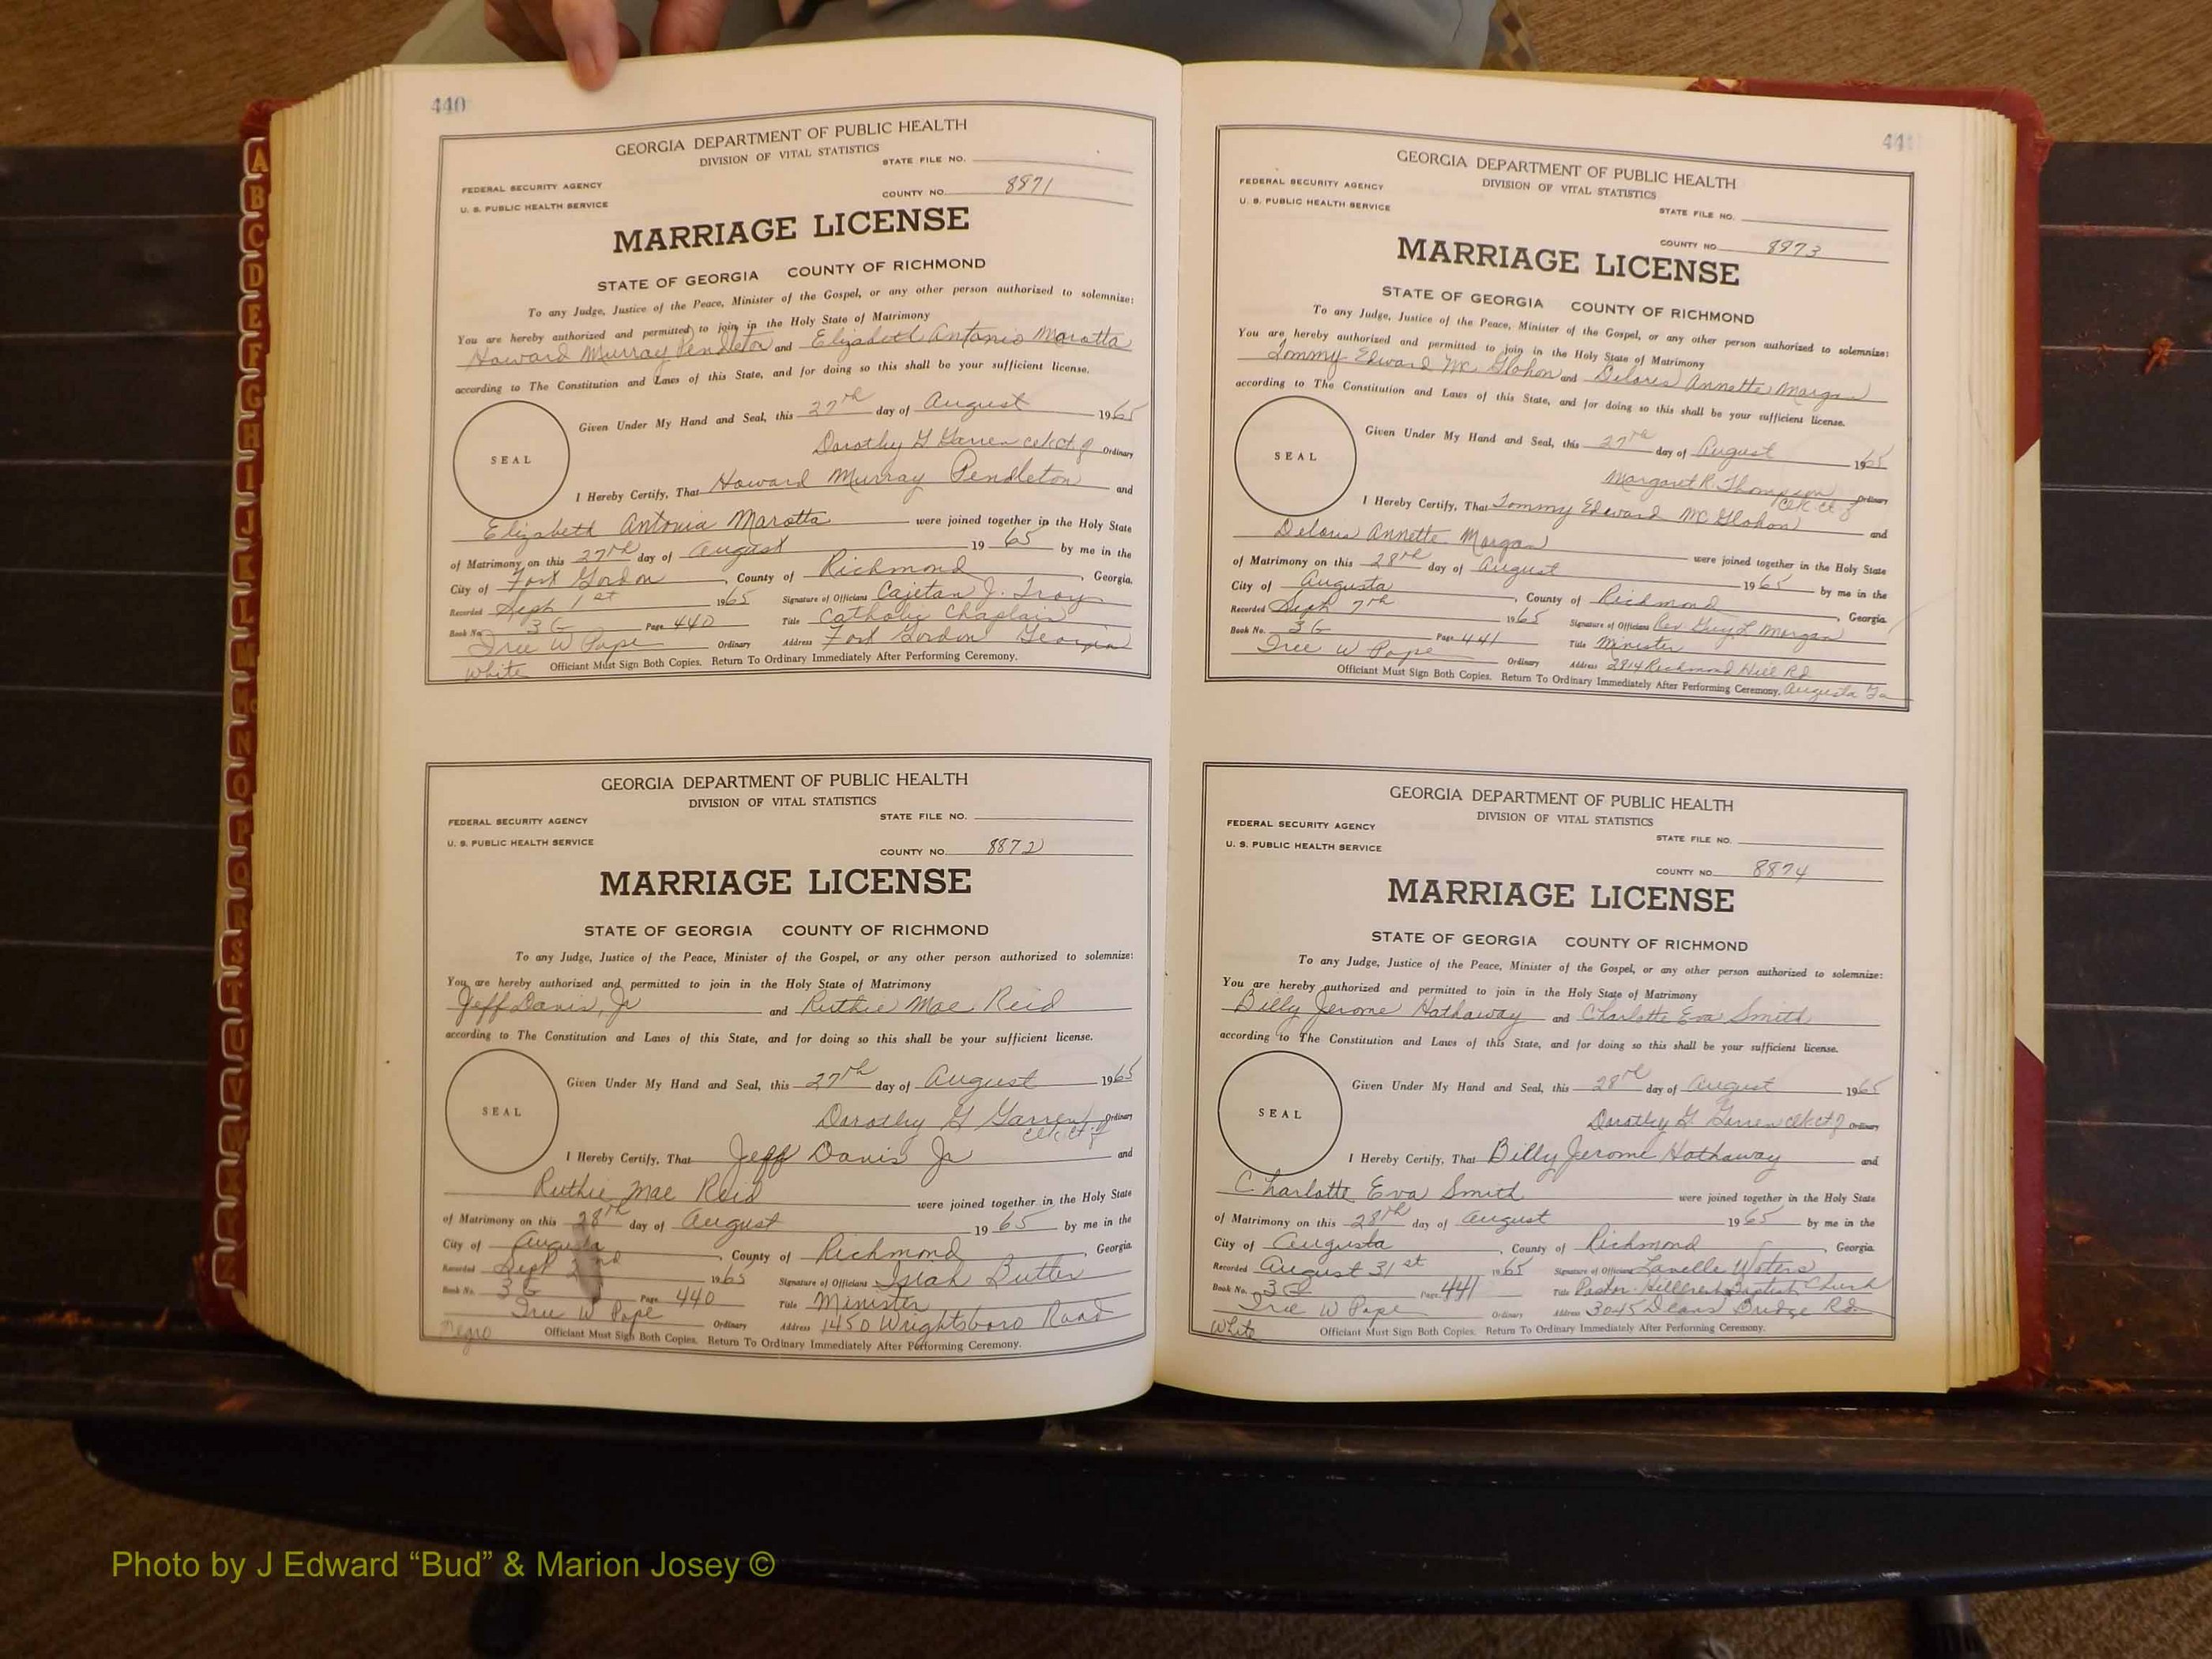 440
GEORGIA DEPARTMENT OF PUBLIC HEALTH
DIVISION OF VITAL STATISTICS
STATE FILE NO.
FEDERAL SECURITY AGENCY
U. S. PUBLIC HEALTH SERVICE
COUNTY NO. 8871
MARRIAGE LICENSE
STATE OF GEORGIA COUNTY OF RICHMOND
To any Judge, Justice of the Peace, Minister of the Gospel, or any other person authorized to solemnize:
You are hereby authorized and permitted to join in the Holy State of Matrimony
Howard Murray Pendleton and Elizabeth Antonio Marotta
according to The Constitution and Laws of this State, and for doing so this shall be your sufficient license.
Given Under My Hand and Seal, this 27th day of August 1965
SEAL
Dorothy G Garren clk ct of Ordinary
I Hereby Certify, That Howard Murray Pendleton and
Elizabeth Antonia Marotta were joined together in the Holy State
of Matrimony on this 27th day of August 1965 by me in the
City of Fort Gordon, County of Richmond, Georgia.
Recorded Sept 1st 1965 Signature of Officiant Cajetan J. Troy
Book No. 3G Page 440 Title Catholic Chaplain
Tree W Pope Ordinary Address Fort Gordon Georgia
White Officiant Must Sign Both Copies. Return To Ordinary Immediately After Performing Ceremony.
GEORGIA DEPARTMENT OF PUBLIC HEALTH
DIVISION OF VITAL STATISTICS
STATE FILE NO.
FEDERAL SECURITY AGENCY
U. S. PUBLIC HEALTH SERVICE
COUNTY NO. 8872
MARRIAGE LICENSE
STATE OF GEORGIA COUNTY OF RICHMOND
To any Judge, Justice of the Peace, Minister of the Gospel, or any other person authorized to solemnize:
You are hereby authorized and permitted to join in the Holy State of Matrimony
Jeff Davis, Jr and Ruthie Mae Reid
according to The Constitution and Laws of this State, and for doing so this shall be your sufficient license.
Given Under My Hand and Seal, this 27th day of August 1965
SEAL
Dorothy G Garren Ordinary
clk ct of
I Hereby Certify, That Jeff Davis Jr and
Ruthie Mae Reid were joined together in the Holy State
of Matrimony on this 28th day of August 1965 by me in the
City of Augusta, County of Richmond, Georgia
Recorded Sept 2nd 1965 Signature of Officiant Isiah Butler
Book No. 3G Page 440 Title Minister
Tree W Pope Ordinary Address 1450 Wrightsboro Road
Negro Officiant Must Sign Both Copies. Return To Ordinary Immediately After Performing Ceremony.
441
GEORGIA DEPARTMENT OF PUBLIC HEALTH
DIVISION OF VITAL STATISTICS
FEDERAL SECURITY AGENCY
U. S. PUBLIC HEALTH SERVICE
STATE FILE NO.
COUNTY NO. 8973
MARRIAGE LICENSE
STATE OF GEORGIA COUNTY OF RICHMOND
To any Judge, Justice of the Peace, Minister of the Gospel, or any other person authorized to solemnize:
You are hereby authorized and permitted to join in the Holy State of Matrimony
Tommy Edward Mc Glohon and Delores Annette Morgan
according to The Constitution and Laws of this State, and for doing so this shall be your sufficient license.
Given Under My Hand and Seal, this 27th day of August 1965
SEAL
Margaret R. Thompson Ordinary
clk ct of
I Hereby Certify, That Tommy Edward McGlohon and
Delores Annette Morgan were joined together in the Holy State
of Matrimony on this 28th day of August 1965 by me in the
City of Augusta, County of Richmond, Georgia.
Recorded Sept 7th 1965 Signature of Officiant Rev Guy L Morgan
Book No. 3G Page 441 Title Minister
Tree W Pope Ordinary Address 2814 Richmond Hill Rd
Officiant Must Sign Both Copies. Return To Ordinary Immediately After Performing Ceremony. Augusta Ga
GEORGIA DEPARTMENT OF PUBLIC HEALTH
DIVISION OF VITAL STATISTICS
FEDERAL SECURITY AGENCY
U. S. PUBLIC HEALTH SERVICE
STATE FILE NO.
COUNTY NO. 8874
MARRIAGE LICENSE
STATE OF GEORGIA COUNTY OF RICHMOND
To any Judge, Justice of the Peace, Minister of the Gospel, or any other person authorized to solemnize:
You are hereby authorized and permitted to join in the Holy State of Matrimony
Billy Jerome Hathaway and Charlotte Eva Smith
according to The Constitution and Laws of this State, and for doing so this shall be your sufficient license.
Given Under My Hand and Seal, this 28th day of August 1965
SEAL
Dorothy G Garren clk ct of Ordinary
I Hereby Certify, That Billy Jerome Hathaway and
Charlotte Eva Smith were joined together in the Holy State
of Matrimony on this 28th day of August 1965 by me in the
City of Augusta, County of Richmond, Georgia
Recorded August 31st 1965 Signature of Officiant Lavelle Waters
Book No. 3G Page 441 Title Pastor Hillcrest Baptist Church
Tree W Pope Ordinary Address 3045 Deans Bridge Rd.
White Officiant Must Sign Both Copies. Return To Ordinary Immediately After Performing Ceremony.
A
B
C
D
E
F
G
H
I
J
K
L
M
Mc
N
O
P
Q
R
S
T
U
V
W
Photo by J Edward “Bud” & Marion Josey ©